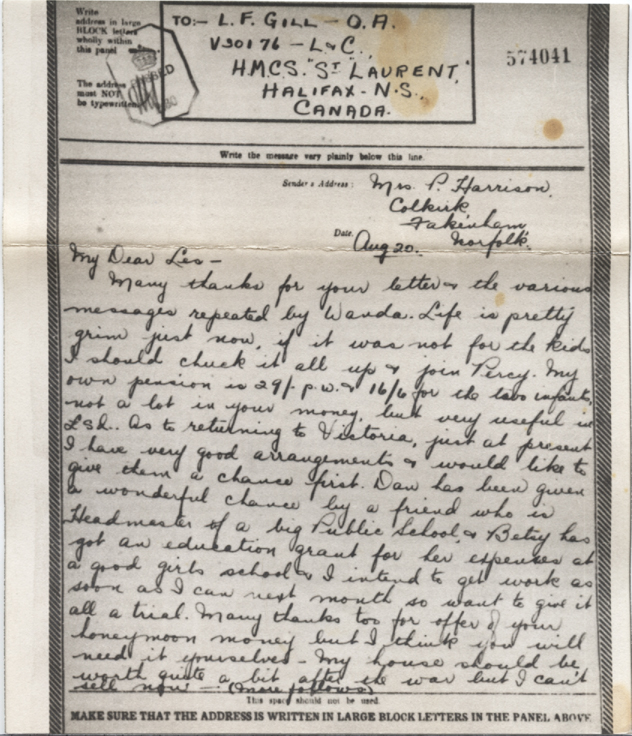 Write
address in large
BLOCK letters
wholly within
this panel
The address
must NOT
be typewritten
TO:- L. F. GILL - O.A.
V30176 - L & C.
H.M.C.S. "ST LAURENT,"
HALIFAX - N.S.,
CANADA.
574041
Write the message very plainly below this line.
Sender's Address: Mrs. P. Harrison,
Colkirk,
Fakenham,
Norfolk.
Date. Aug 20.
My Dear Les -
Many thanks for your letter & the various
messages repeated by Wanda. Life is pretty
grim just now, if it was not for the kids
I should chuck it all up & join Percy. My
own pension is 29/- p.w. & 16/6 for the two infants,
not a lot in your money, but very useful in
£.s.d.. As to returning to Victoria, just at present
I have very good arrangements & would like to
give them a chance first. Dan has been given
a wonderful chance by a friend who is
Headmaster of a big Public School, & Betsy has
got an education grant for her expenses at
a good girls school & I intend to get work as
soon as I can next month so want to give it
all a trial. Many thanks too for offer of your
honeymoon money but I think you will
need it yourselves - My house should be
worth quite a bit after the war but I can't
sell now - (more follows)
This space should not be used.
MAKE SURE THAT THE ADDRESS IS WRITTEN IN LARGE BLOCK LETTERS IN THE PANEL ABOVE